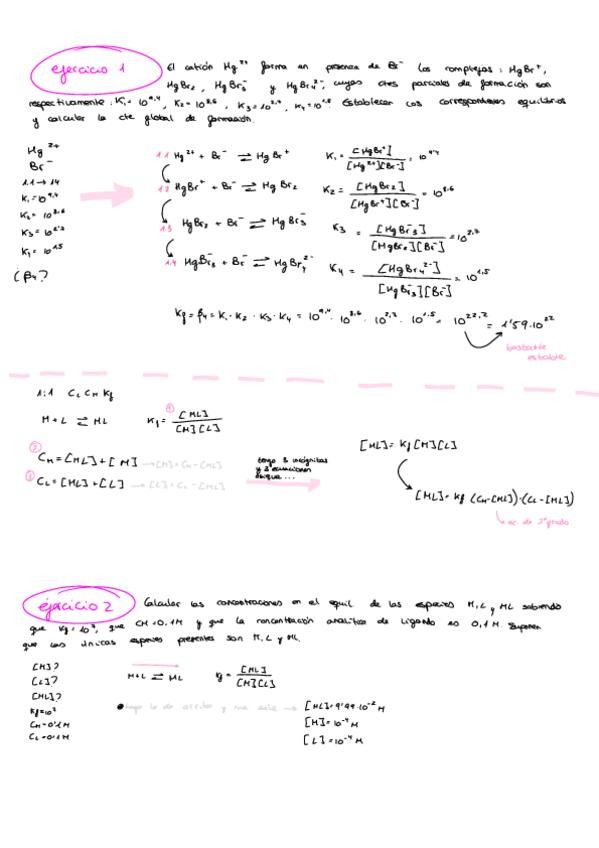 ejercicio 1
El catión Hg²⁺ forma en presencia de Br⁻ los complejos: HgBr⁺,
HgBr₂, HgBr₃⁻ y HgBr₄²⁻, cuyas ctes parciales de formación son
respectivamente: K₁=10^9,4, K₂=10^8,6, K₃=10^2,7, K₄=10^1,5 Establecer los correspondientes equilibrios
y calcular la cte global de formación.
Hg²⁺
Br⁻
1:1 → 1:4
K₁=10^9,4
K₂=10^8,6
K₃=10^2,7
K₄=10^1,5
¿β₄?
1:1 Hg²⁺ + Br⁻ ⇌ HgBr⁺ K₁=[HgBr⁺]/[Hg²⁺][Br⁻]=10^9,4
1:2 HgBr⁺ + Br⁻ ⇌ HgBr₂ K₂=[HgBr₂]/[HgBr⁺][Br⁻]=10^8,6
1:3 HgBr₂ + Br⁻ ⇌ HgBr₃⁻ K₃=[HgBr₃⁻]/[HgBr₂][Br⁻]=10^2,7
1:4 HgBr₃⁻ + Br⁻ ⇌ HgBr₄²⁻ K₄=[HgBr₄²⁻]/[HgBr₃⁻][Br⁻]=10^1,5
Kf=β₄=K₁·K₂·K₃·K₄=10^9,4·10^8,6·10^2,7·10^1,5=10^22,2=1'59·10²²
bastante
estable
1:1 CL CM Kf
M+L ⇌ ML Kf=[ML]/[M][L]
② CM=[ML]+[M] → [M]=CM-[ML]
③ CL=[ML]+[L] → [L]=CL-[ML]
tengo 3 incógnitas
y 3 ecuaciones
[ML]=Kf[M][L]
[ML]=Kf (CM-[ML])·(CL-[ML])
ec. de 2º grado
ejercicio 2
Calcular las concentraciones en el equil de las especies M, L y ML sabiendo
que CM=0,1M y que la concentración analítica de ligando es 0,1M
que las únicas especies presentes son M, L y ML.
[M]?
[L]?
[ML]?
CM=0'1M
CL=0'1M
M+L ⇌ ML Kf=[ML]/[M][L]
hago lo de arriba y me sale → [ML]=9'99·10⁻² M
[M]=10⁻⁴ M
[L]=10⁻⁴ M